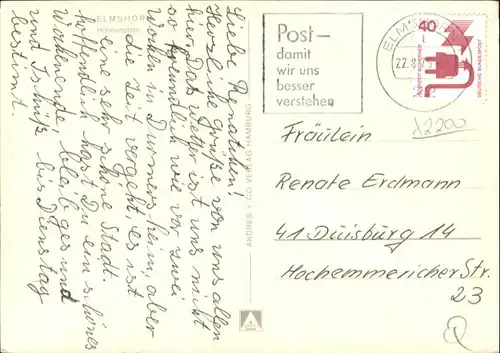 ELMSHORN
Liebe Renatchen!
Herzliche Grüße von uns allen
hier. Das Wetter ist uns nicht
so freundlich wie vor zwei
Wochen in Durmersheim, aber
die Zeit vergeht, es ist
eine sehr schöne Stadt.
hoffentlich hast Du ein schönes
Wochenende, bleib gesund
und Tschüß bis Dienstag
bestimmt.
ANDRES + CO VERLAG HAMBURG
Post –
damit
wir uns
besser
verstehen
ELMSHORN
40
DEUTSCHE BUNDESPOST
X2200
Fräulein
Renate Erdmann
41 Duisburg 14
Hochemmericher Str.
23